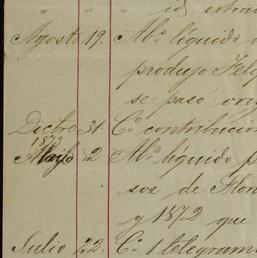 " " id. extra
Agosto 19. Mº. líquido
produjo Felg
se pasó orig
Dictre 31. Cº. contribucion
1872
Mayo 2 Mº. líquido p
sos de Flor
y 1872 que
Julio 22. Cº. 1 telegram